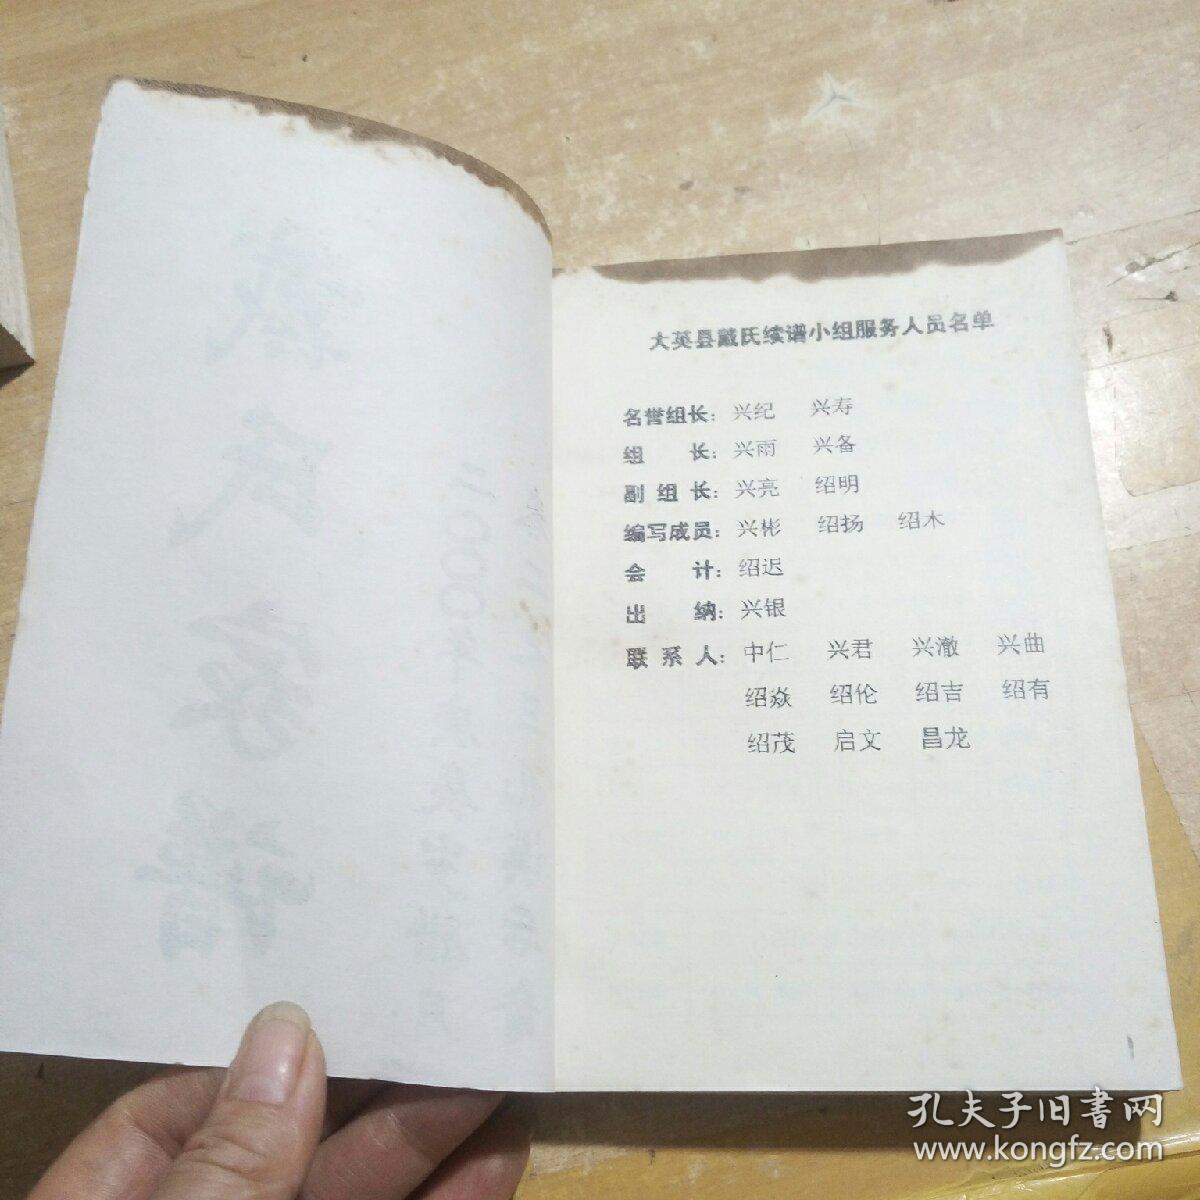 大英县戴氏续谱小组服务人员名单
名誉组长：兴纪 兴寿
组 长：兴雨 兴备
副 组 长：兴亮 绍明
编写成员：兴彬 绍扬 绍木
会 计：绍迟
出 纳：兴银
联 系 人：中仁 兴君 兴澈 兴曲
绍焱 绍伦 绍吉 绍有
绍茂 启文 昌龙
戴氏家谱
孔夫子旧書网
www.kongfz.com